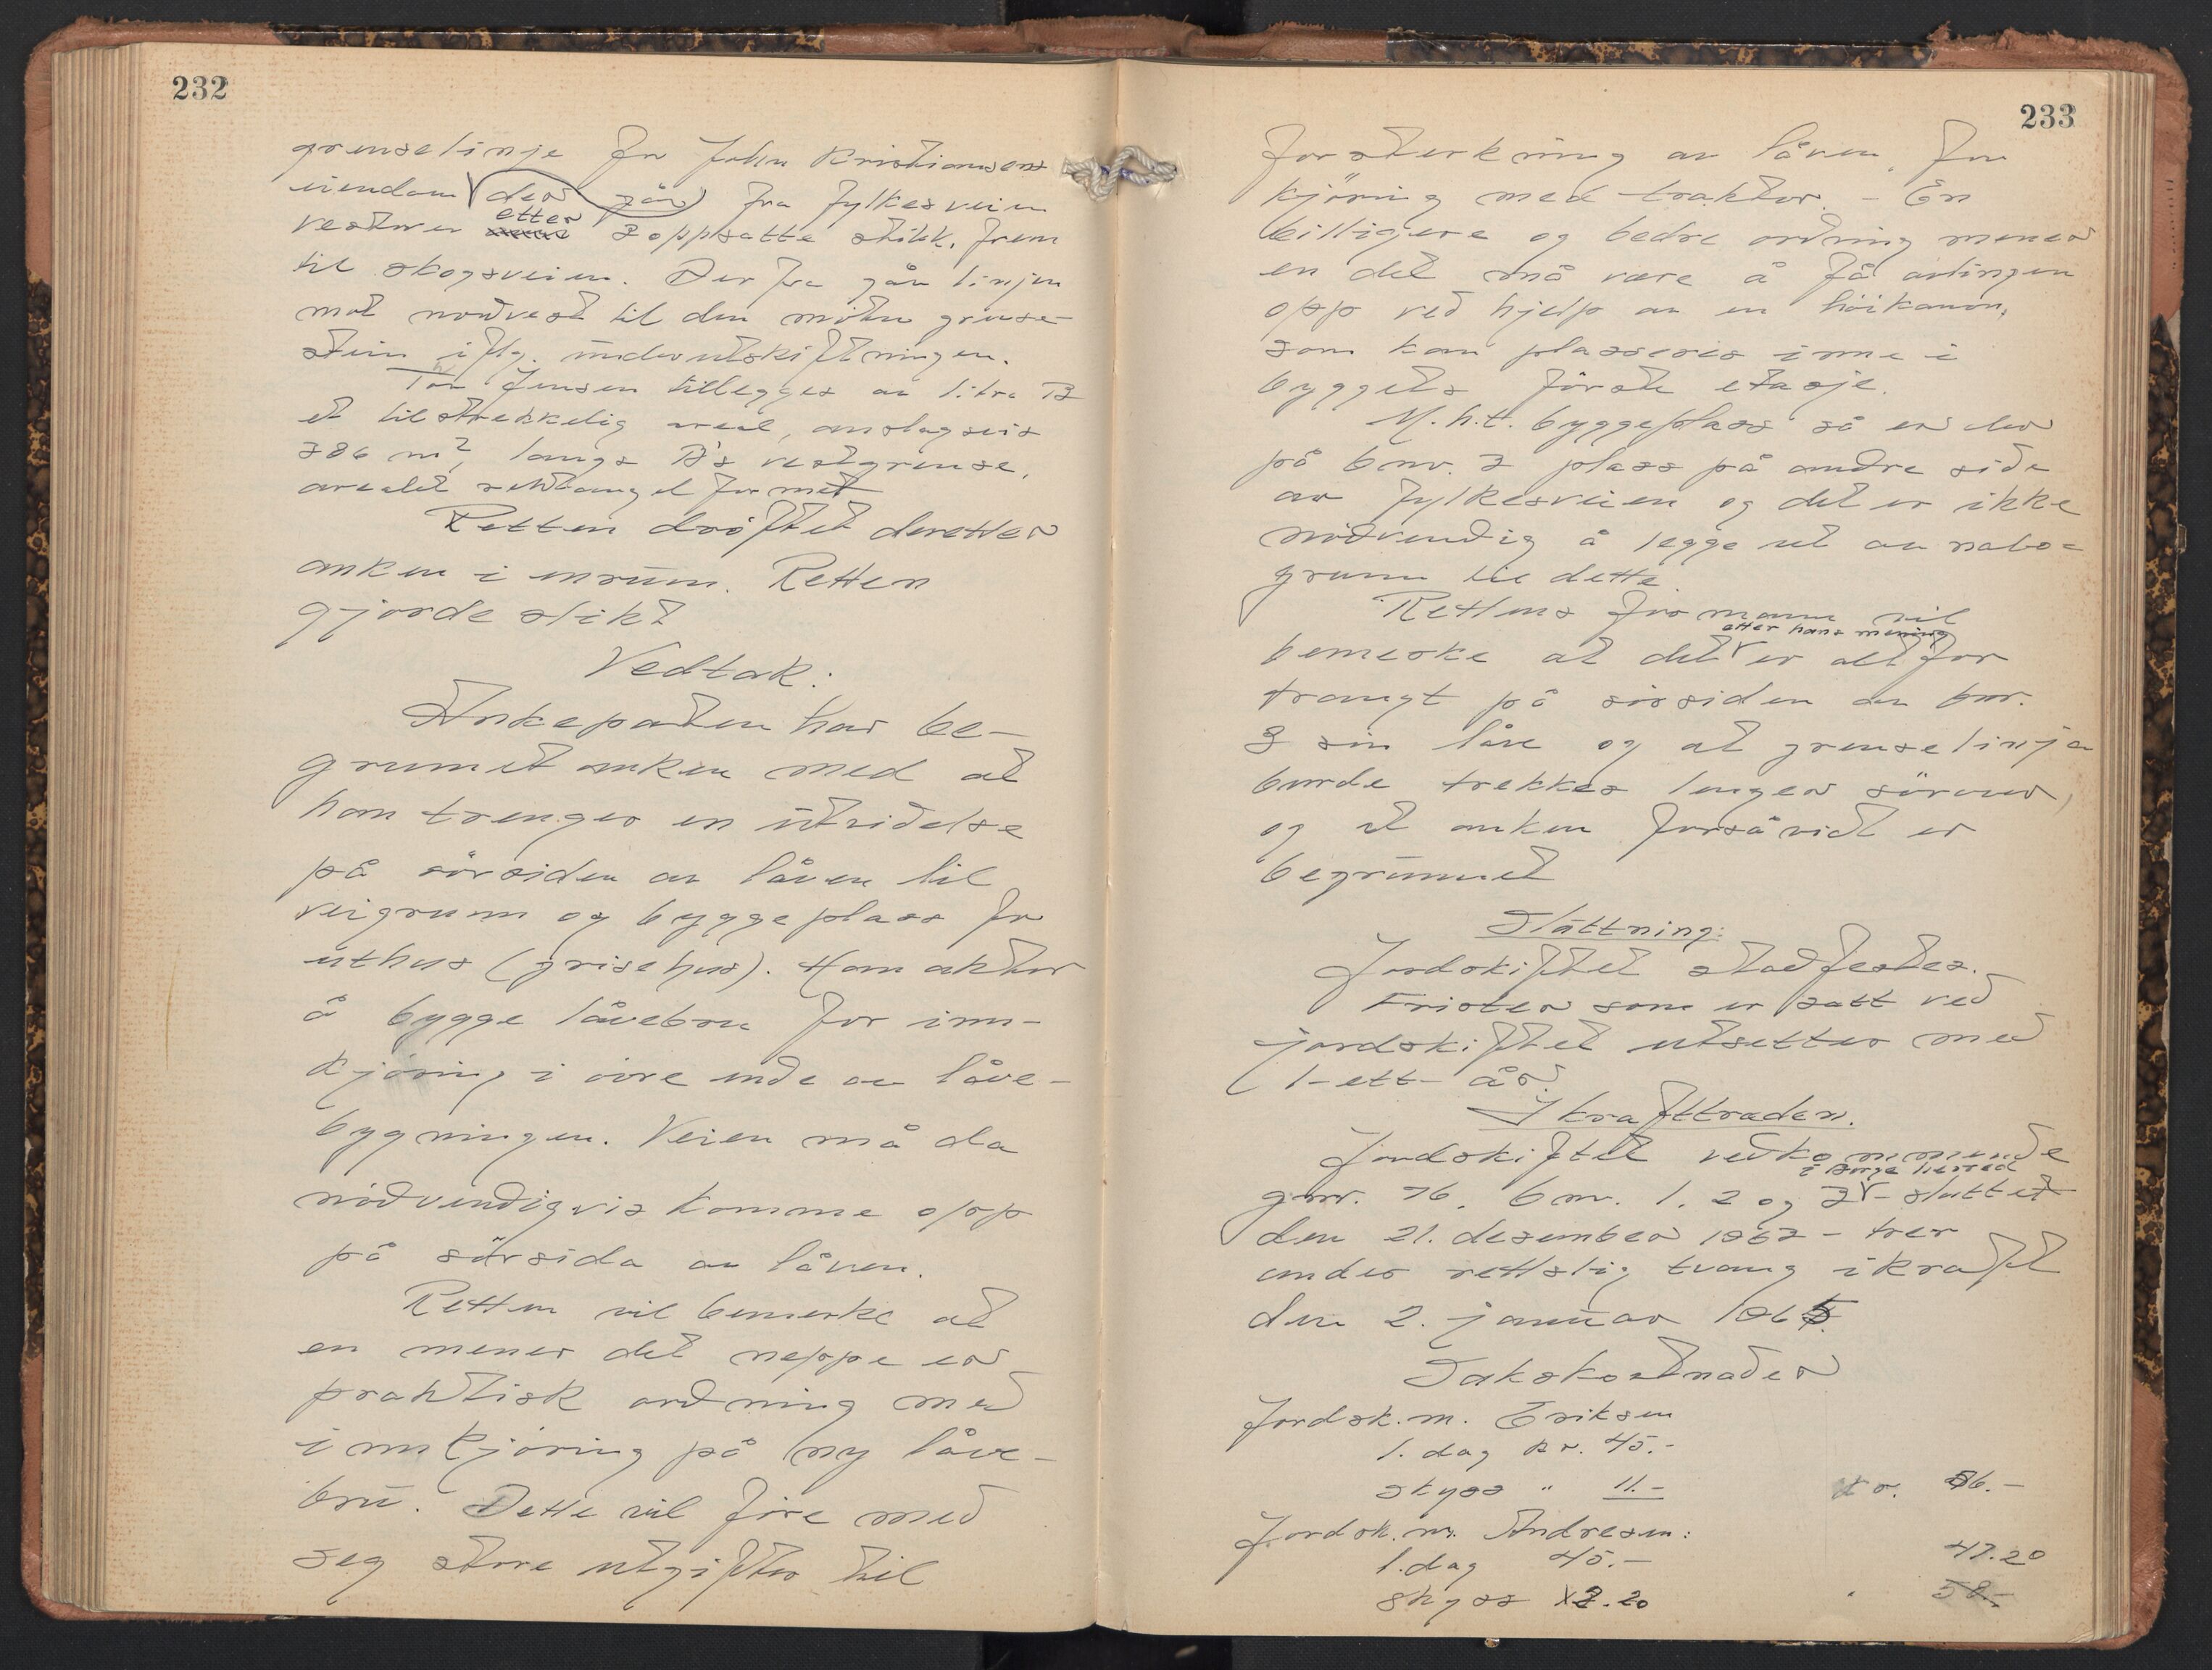 232
grenselinje for John Kristiansens
eiendom der går fra fylkesveien
vestover etter 3 oppsatte stikk, frem
til skogsveien. Der fra går linjen
mot nordvest til den midtre grense-
stein iflg. underutskiftningen.
Tor Jensen tillegges av litra B
et tilstrekkelig areal, anslagsvis
386 m², langs B's vestgrense,
arealet rektangel formet
Retten drøftet deretter
anken i enrum. Retten
gjorde slikt
Vedtak:
Ankeparten har be-
grunnet anken med at
han trenger en utvidelse
på sörsiden av låven til
veigrunn og byggeplass for
uthus (grisehus). Han akter
å bygge låvebru for inn-
kjöring i övre ende av låve-
bygningen. Veien må da
nödvendigvis komme opp
på sörsida av låven.
Retten vil bemerke at
en mener det neppe er
praktisk ordning med
innkjöring på ny låve-
bru. Dette vil före med
seg störe utgifter til
233
forsterkning av låven for
kjöring med traktor. - En
billigere og bedre ordning mener
en det må være å få avlingen
opp ved hjelp av en höikanon,
som kan plasseres inne i
byggets förste etasje.
M.h.t. byggeplass så er der
på bnr. 3 plass på andre side
av fylkesveien og det er ikke
nödvendig å legge ut av nabo-
grunn til dette.
Rettens formann vil
etter hans mening
bemerke at det er alt for
trangt på sörsiden av bnr.
3 sin låve og at grenselinja
burde trekkes lenger sörover,
og at anken forsåvidt er
begrunnet
Slutning:
Jordskiftet stadfestes.
Frister som er satt ved
jordskiftet utsettes med
1-ett- år.
Ikrafttreden.
Jordskiftet vedkommende
i Borge herred
gnr. 76, bnr. 1, 2 og 3 - sluttet
den 21. desember 1963 - trer
under rettslig tvang ikraft
den 2. januar 1965.
Sakskostnader
Jordsk.m. Eriksen
1. dag kr. 45.-
skyss " 11.- kr. 56.-
Jordsk.m. Andresen:
1. dag 45.- 47.20
skyss 2.20 " 58.-